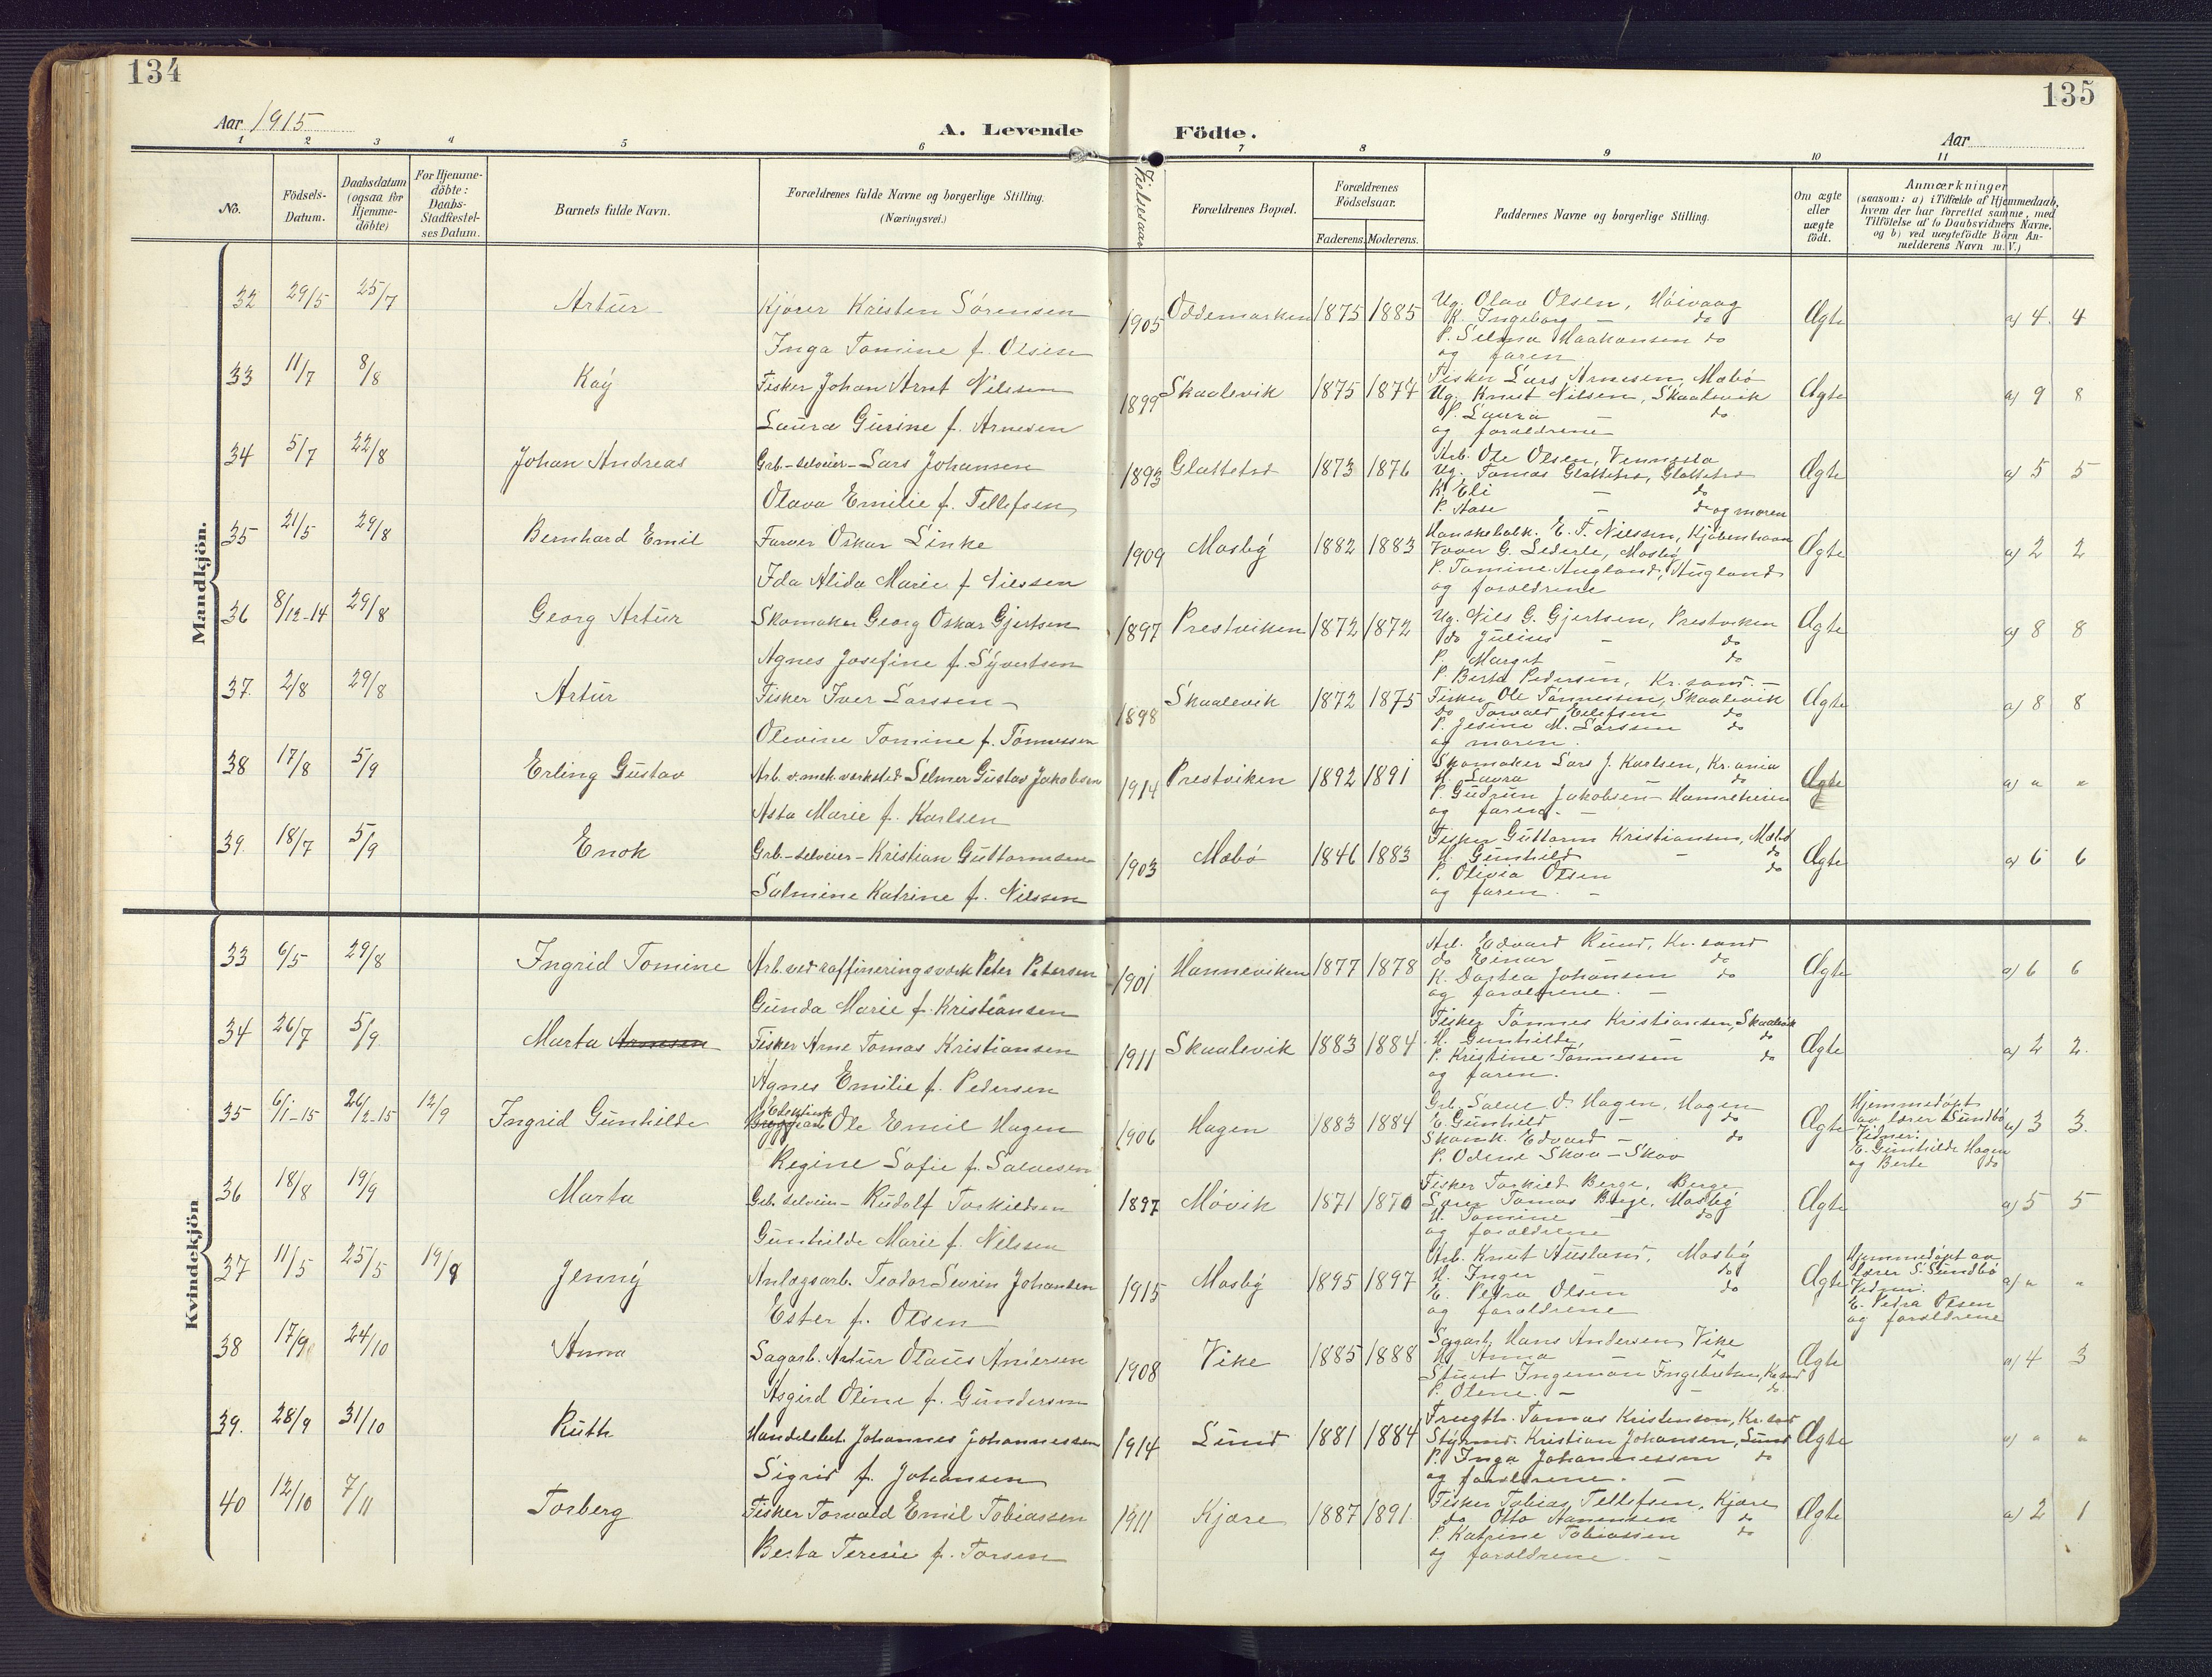 134
135
Aar 1915
A. Levende
Födte.
Aar
1 2 3 4 5 6 7 8 9 10 11
No.
Födsels-Datum.
Daabsdatum (ogsaa for Hjemme-döbte)
For Hjemme-döbte: Daabs-Stadfæstel-ses Datum.
Barnets fulde Navn.
Forældrenes fulde Navne og borgerlige Stilling.
(Næringsvei.)
Vielsesaar
Forældrenes Bopæl.
Forældrenes Födselsaar.
Faderens. Moderens.
Faddernes Navne og borgerlige Stilling.
Om ægte eller uægte födt.
Anmærkninger
(saasom: a) i Tilfælde af Hjemmedaab, hvem der har forrettet samme, med Tilföielse af to Daabsvidners Navne. og b) ved uægtefödte Börn An-melderens Navn m. V.)
Mandkjön.
32 29/5 25/7 Artur Kjører Kristen Sørensen 1905 Oddemarken 1875 1885 Ug. Olav Olsen, Høivaag Ægte a) 4. 4
K. Ingeborg — do
Inga Tomine f. Olsen P. Selma Haakonsen do
og faren
33 11/7 8/8 Kaÿ Fisker Johan Arnt Nilssen 1899 Skaalevik 1875 1874 Fisker Lars Arnesen, Mæbø Ægte a) 9 8
Ug. Knut Nilsen, Skaalevik
Laura Gurine f. Arnesen P. Laura — do
og forældrene
34 5/7 22/8 Johan Andreas Grb.-selveier- Lars Johansen 1893 Glattetre 1873 1876 Arb. Ole Olsen, Vennesla Ægte a) 5 5
Ug. Tomas Glattetre, Glattetre
Olava Emilie f. Tellefsen K. Eli — do
P. Aase — do og moren
35 21/5 29/8 Bernhard Emil Farver Oskar Linke 1909 Mosbÿ 1882 1883 Hanskefabk. E. F. Nielsen, Kjøbenhavn Ægte a) 2 2
Væver G. Lederle, Mosbÿ
Ida Alida Marie f. Nilssen P. Tomine Augland, Augland
og forældrene
36 8/12-14 29/8 Georg Artur Skomaker Georg Oskar Gjertsen 1897 Prestviken 1872 1872 Ug. Nils G. Gjertsen, Prestviken Ægte a) 8 8
do Julius — do
Agnes Josefine f. Sÿvertsen P. Margit — do
P. Berta Pedersen, Kr.sand. —
37. 2/8 29/8 Artur Fisker Iver Larssen 1898 Skaalevik 1872 1875 Fisker Ole Tønnessen, Skaalevik Ægte a) 8 8
do Torvald Eilefsen do
Olevine Tomine f. Tønnessen P. Jesine M. Larssen do
og moren.
38 17/8 5/9 Erling Gustav Arb. v. mek. verksted Selmer Gustav Jakobsen 1914 Prestviken 1892 1891 Skomaker Lars J. Karlsen, Kr.ania Ægte a) " "
K. Laura — do
Asta Marie f. Karlsen P. Gudrun Jakobsen Hamreheien
og faren. —
39. 18/7 5/9 Enok Grb.-selveier- Kristian Guttormsen 1903 Mæbø 1846 1883 Fisker Guttorm Kristiansen, Mæbø Ægte a) 6 6
K. Gunhild — do
Salmine Katrine f. Nilssen P. Olivia Olsen do
og faren. —
Kvindekjön
33 6/5 29/8 Ingrid Tomine Arb. ved raffineringsverk Peter Petersen 1901 Hanneviken 1877 1878 Arb. Edvard Rund, Kr.sand Ægte a) 6 6
do Einar — do
Gunda Marie f. Kristiansen K. Dortea Johansen do
og forældrene. —
34 26/7 5/9 Marta Arnesen Fisker Arne Tomas Kristiansen 1911 Skaalevik 1883 1884 Fisker Tønnes Kristiansen, Skaalevik Ægte a) 2 2.
K. Gunhilde, — do
Agnes Emilie f. Pedersen P. Kristine Tønnessen do
og faren.
35 6/1-15 26/2-15 12/9 Ingrid Gunhilde Ole Emil Hagen 1906 Hagen 1883 1884 Grb. Salve O. Hagen, Hagen Ægte Hjemmedøpt av lærer Sundbø a) 3 3.
E. Gunhild — do Vidner:
Regine Sofie f. Salvesen Skomk. Edvard — do E. Gunhilde Hagen
P. Odene Skaa - Skaa og Berte do
36 18/8 19/9 Marta Grb. selveier- Rudolf Torkildsen 1897 Møvik 1871 1870 Fisker Torkild Berge, Berge Ægte a) 5 5
Lærer Tomas Berge, Mosbÿ
Gunhilde Marie f. Nilssen K. Tomine — do
og forældrene
37 11/5 25/5 19/9 Jennÿ Anlægsarb. Teodor Severin Johansen 1915 Mosbÿ 1895 1897 Arb. Knut Ausland, Mosbÿ Ægte Hjemmedøpt av lærer S. Sundbø a) " "
K. Inger do Vidner:
Ester f. Olsen E. Petra Olsen do E. Petra Olsen
og forældrene og forældrene
38 17/9 24/10 Anna Sagarb. Artur Olaus Andersen 1908 Vike 1885 1888 Sagarb. Hans Andersen, Vike Ægte a) 4 3
K. Anna — do
Asgerd Oline f. Gundersen Stuert Ingeman Ingebretsen, Kr.sand
P. Olene. — do.
39. 28/9 31/10 Ruth Handelsbet. Johannes Johannessen 1914 Lund 1881 1884 Frugth. Tomas Kristensen, Kr.sand Ægte a) " "
Stÿrmd. Kristian Johansen, Lund
Sigrid f. Johansen P. Inga Johannessen do
og forældrene. —
40 12/10 7/11 Torberg Fisker Torvald Emil Tobiassen 1911 Kjære 1887 1891 Fisker Tobias Tellefsen, Kjære Ægte a) 2 1
do Otto Hanensen do
Berta Teresie f. Torsen P. Katrine Tobiassen do
og forældrene. —